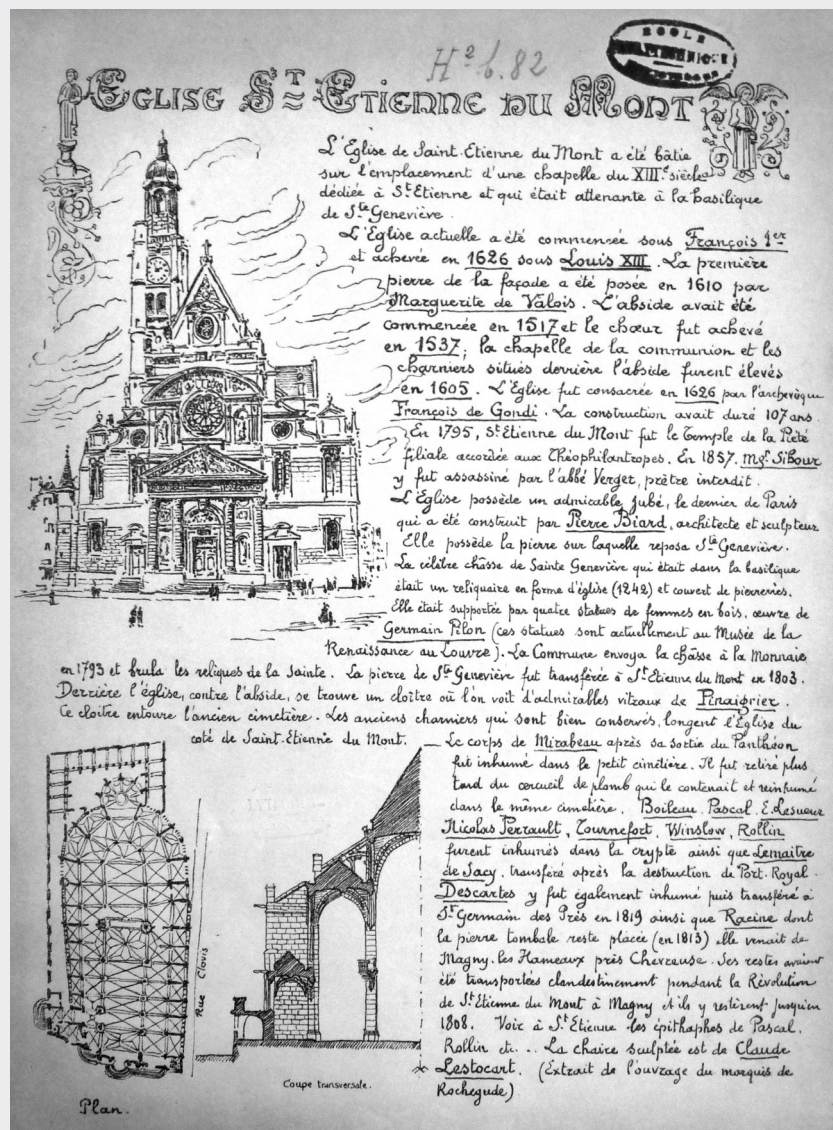 H² b. 82
ECOLE
POLYTECHNIQUE
EGLISE ST ETIENNE DU MONT
L'Eglise de Saint-Etienne du Mont a été bâtie
sur l'emplacement d'une chapelle du XIIIe siècle
dédiée à St Etienne et qui était attenante à la basilique
de Ste Geneviève.
L'Eglise actuelle a été commencée sous François 1er
et achevée en 1626 sous Louis XIII. La première
pierre de la façade a été posée en 1610 par
Marguerite de Valois. L'abside avait été
commencée en 1517 et le chœur fut achevé
en 1537; la chapelle de la communion et les
charniers situés derrière l'abside furent élevés
en 1605. L'Eglise fut consacrée en 1626 par l'archevêque
François de Gondi. La construction avait duré 107 ans.
En 1795, St Etienne du Mont fut le Temple de la Piété
filiale accordée aux Théophilantropes. En 1857. Mgr Sibour
y fut assassiné par l'abbé Verger, prètre interdit.
L'Eglise possède un admirable jubé, le dernier de Paris
qui a été construit par Pierre Biard, architecte et sculpteur
Elle possède la pierre sur laquelle reposa Ste Geneviève.
La célèbre châsse de Sainte Geneviève qui était dans la basilique
était un reliquaire en forme d'église (1242) et couvert de pierreries.
Elle était supportée par quatre statues de femmes en bois, œuvre de
Germain Pilon (ces statues sont actuellement au Musée de la
Renaissance au Louvre). La Commune envoya la châsse à la Monnaie
en 1793 et brula les reliques de la Sainte. La pierre de Ste Geneviève fut transférée à St Etienne du Mont en 1803.
Derrière l'église, contre l'abside, se trouve un cloître où l'on voit d'admirables vitraux de Pinaigrier.
Ce cloître entoure l'ancien cimetière. Les anciens charniers qui sont bien conservés, longent l'Eglise du
coté de Saint-Etienne du Mont.
Le corps de Mirabeau après sa sortie du Panthéon
fut inhumé dans le petit cimetière. Il fut retiré plus
tard du cercueil de plomb qui le contenait et reinhumé
dans le même cimetière. Boileau. Pascal. E. Lesueur
Nicolas Perrault, Tournefort, Winslow, Rollin
furent inhumés dans la crypte ainsi que Lemaitre
de Sacy, transféré après la destruction de Port-Royal.
Descartes y fut également inhumé puis transféré à
St Germain des Près en 1819 ainsi que Racine dont
la pierre tombale reste placée (en 1813) elle venait de
Magny-les Hameaux près Chevreuse. Ses restes avaient
été transportées clandestinement pendant la Révolution
de St Etienne du Mont à Magny et ils y restèrent jusqu'en
1808. Voir à St Etienne les épithaphes de Pascal,
Rollin etc... La chaire sculptée est de Claude
Lestocart. (Extrait de l'ouvrage du marquis de
Rochegude)
Rue Clovis
Coupe transversale.
Plan.